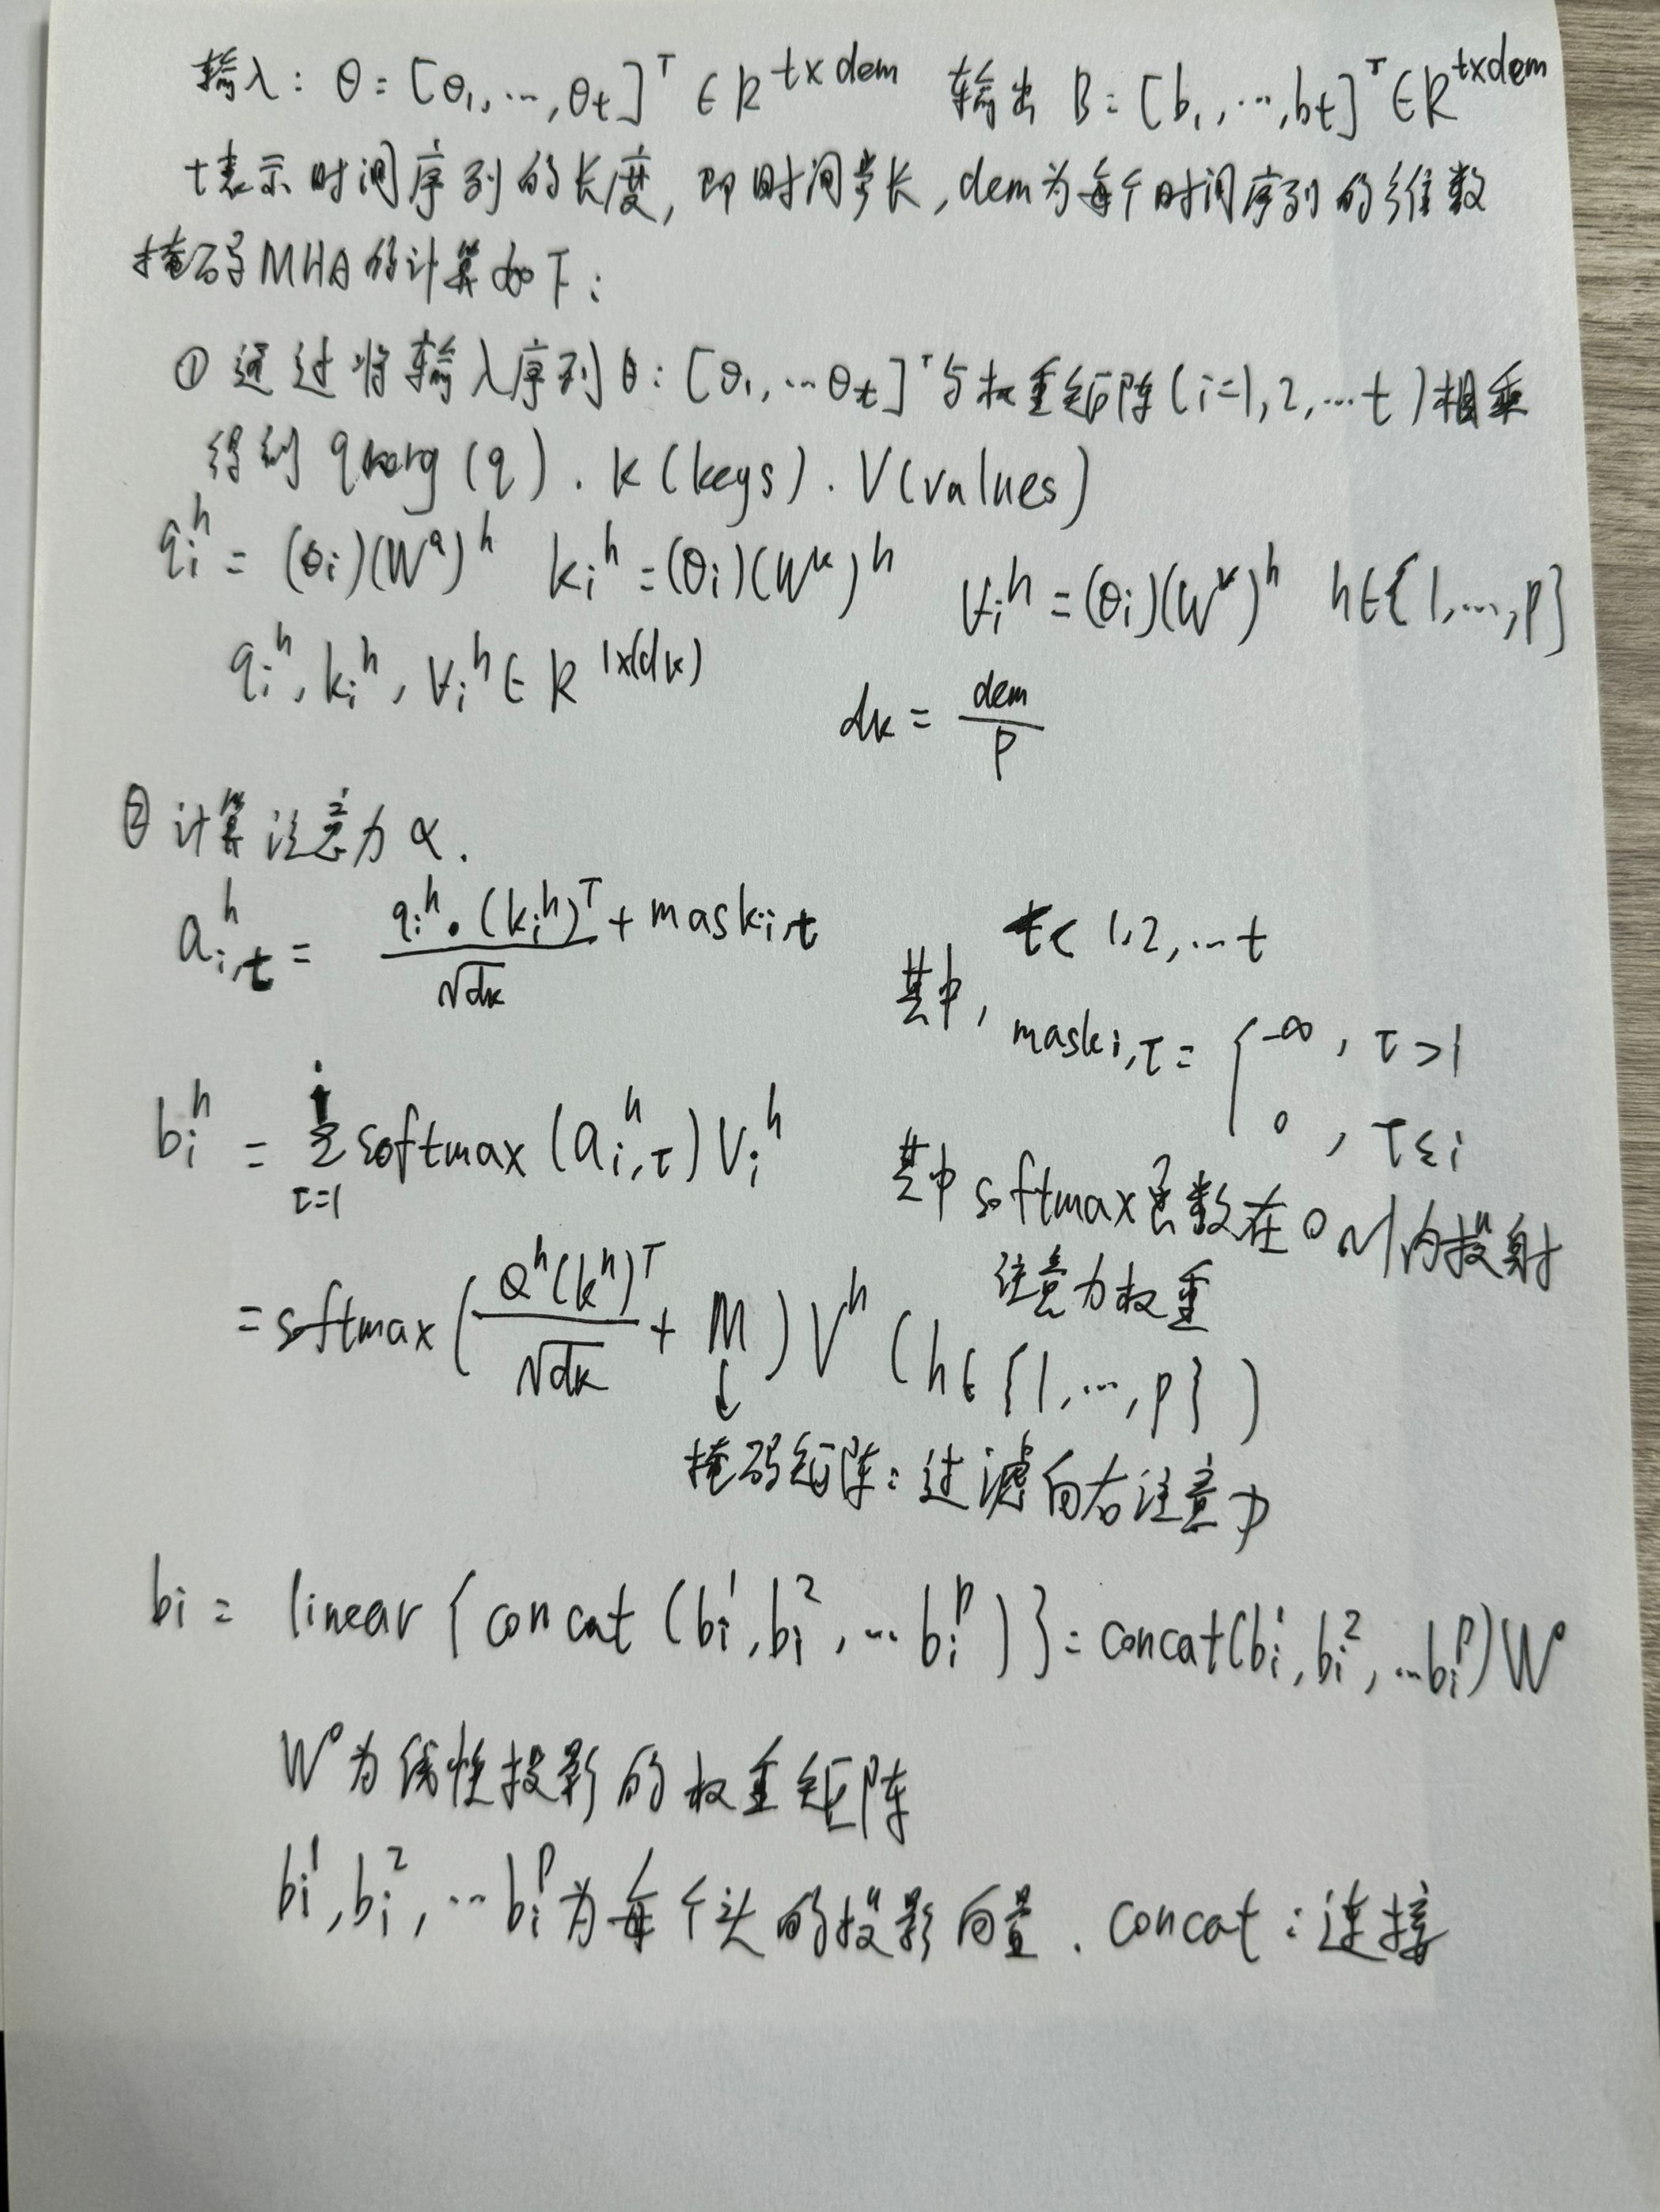 输入: θ = [θ₁, ⋯, θt]ᵀ ∈ R^{t×dem} 输出 B = [b₁, ⋯, bt]ᵀ ∈ R^{t×dem}
t表示时间序列的长度, 即时间步长, dem为每个时间序列的维数
掩码MHA的计算如下:
① 通过将输入序列θ: [θ₁, ⋯θt]ᵀ与权重矩阵(i=1,2,⋯t)相乘
得到 (q). K(keys). V(values)
q_i^h = (θ_i)(W^q)^h k_i^h = (θ_i)(W^k)^h v_i^h = (θ_i)(W^v)^h h∈{1,⋯,p}
q_i^h, k_i^h, v_i^h ∈ R^{1×(dk)}
dk = dem/p
② 计算注意力 α.
a_{i,τ}^h = q_i^h • (k_i^h)ᵀ/√dk + mask_{i,τ}
其中, τ< 1,2,⋯t
mask_{i,τ} = { -∞, τ>1
0, τ≤i
b_i^h = Σ_{τ=1}^{i} softmax(a_{i,τ}^h) V_i^h
其中softmax函数在0~1内投射
注意力权重
= softmax(Q^h(k^h)ᵀ/√dk + M) V^h (h∈{1,⋯,p})
↓
掩码矩阵: 过滤向右注意力
b_i = linear{concat(b_i^1, b_i^2, ⋯b_i^p)} = concat(b_i^1, b_i^2, ⋯b_i^p)W^o
W^o为线性投影的权重矩阵
b_i^1, b_i^2, ⋯b_i^p为每个头的投影向量. concat: 连接